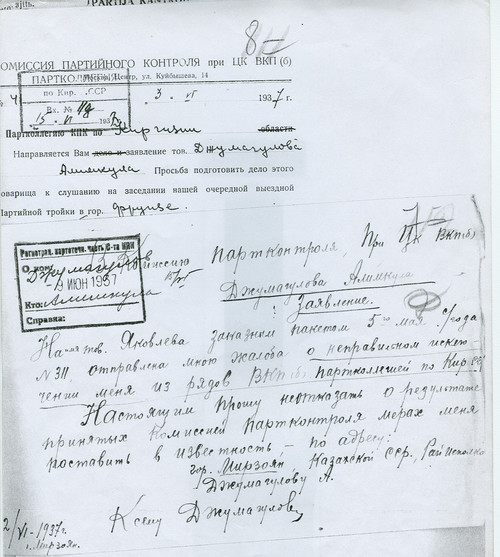 8-
КОМИССИЯ ПАРТИЙНОГО КОНТРОЛЯ при ЦК ВКП(б)
Центр, ул. Куйбышева, 14
ПАРТКОЛЛЕГИЯ
по Кир. ССР
Вх. №
15. VI 193
№ 4
3. VI 1937 г.
Партколлегию КПК по Киргизии области
Направляется Вам дело и заявление тов. Джумагулова
Алимкула. Просьба подготовить дело этого
товарища к слушанию на заседании нашей очередной выездной
Партийной тройки в гор. Фрунзе.
Регистрац. картотечн. часть С-та КПК
О ком: Джумагулов
9 ИЮН 1937
Кто: Алимкула
Справка:
В Комиссию партконтроля, При ЦК ВКП(б)
Джумагулова Алимкула
Заявление.
На имя тов. Яковлева заказним пакетом 5го мая с/года
N 311 отправлена мною жалоба о неправильном исклю-
чении меня из рядов ВКП(б) партколлегией по Кир ССР
Настоящим прошу неотказать о результате
принятых Комиссией партконтроля мерах меня
поставить в известность – по адресу:
гор. Мирзоян, Казахской сср, Райисполком
Джумагулову А.
К сему Джумагулов
2/VI-1937г.
г. Мирзоян.